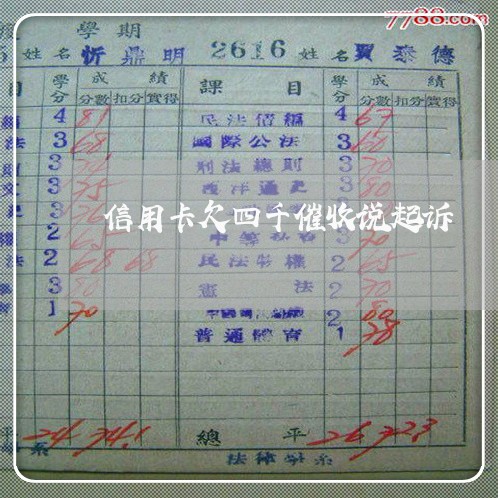 7788.com
學期
姓名 忻鼎明 2616 姓名 賈泰德
目 學分 成績 分數 扣分 實得 課目 學分 成績 分數 扣分 實得
4 81 民法債編 4 67
法 3 68 國際公法 3 60
3 刑法總則 3 70
3 75 西洋通史 3 80
3
信用卡欠四千催收说起诉
2 65 3 70
法 2 68 68 民法物權 2 65
3 80 憲法 2 70
1 70 2 80
普通體育 1 78
平 24 74.1 總平 26 72.3
系 法律學系